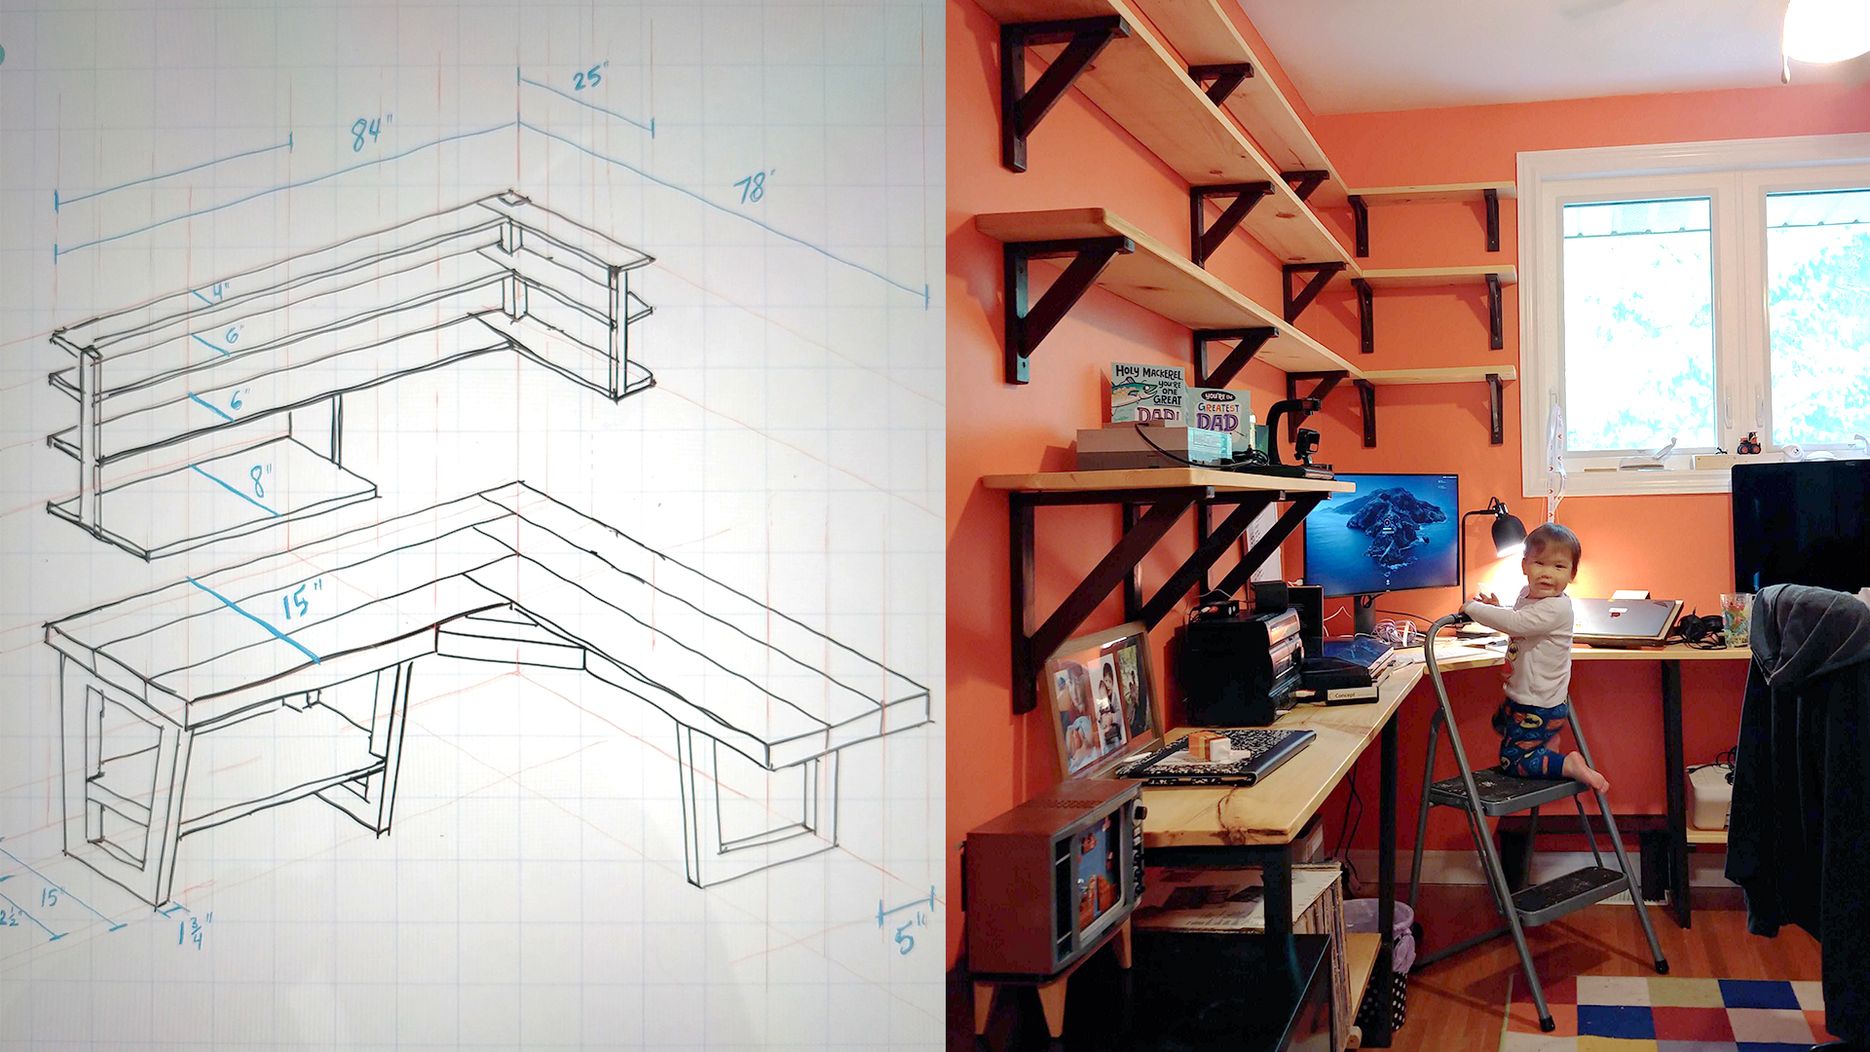 25"
84"
78"
4"
6"
6"
8"
15"
15"
2½"
1¾"
5"
HOLY MACKEREL
YOU'RE
ONE
GREAT
DAD!
YOU'RE THE
GREATEST
DAD
Concept
P